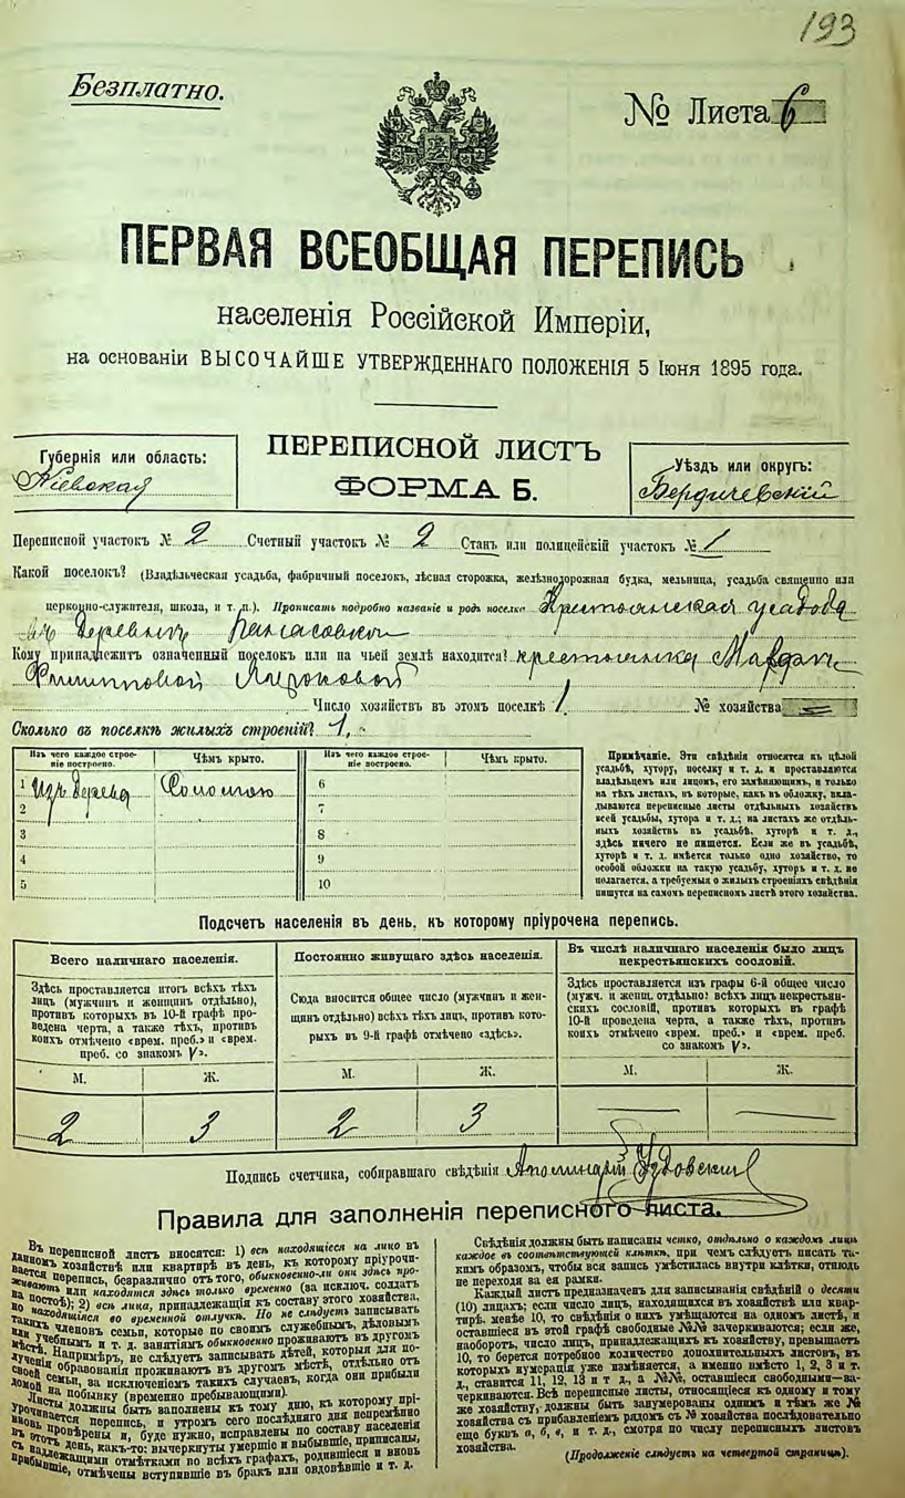 193
Безплатно.
№ Листа 6
ПЕРВАЯ ВСЕОБЩАЯ ПЕРЕПИСЬ
населенія Россійской Имперіи,
на основаніи ВЫСОЧАЙШЕ УТВЕРЖДЕННАГО ПОЛОЖЕНІЯ 5 Іюня 1895 года.
Губернія или область:
Кіевская
ПЕРЕПИСНОЙ ЛИСТЪ
ФОРМА Б.
Уѣздъ или округъ:
Бердичевскій
Переписной участокъ № 2 Счетный участокъ № 2 Станъ или полицейскій участокъ № 1
Какой поселокъ? (Владѣльческая усадьба, фабричный поселокъ, лѣсная сторожка, желѣзнодорожная будка, мельница, усадьба священно или
церковно-служителя, школа, и т. п.). Прописать подробно названіе и родъ поселка Крестьянская усадьба
въ деревнѣ
Кому принадлежитъ означенный поселокъ или на чьей землѣ находится? крестьянка
Филипповой
Число хозяйствъ въ этомъ поселкѣ 1 № хозяйства
Сколько въ поселкѣ жилыхъ строеній? 1,
Изъ чего каждое строе-
ніе построено.
Чѣмъ крыто.
Изъ чего каждое строе-
ніе построено.
Чѣмъ крыто.
1 Изъ дерева Соломою 6
2 7
3 8
4 9
5 10
Примѣчаніе. Эти свѣдѣнія относятся къ цѣлой
усадьбѣ, хутору, поселку и т. д. и проставляются
владѣльцемъ или лицомъ, его замѣняющимъ, и только
на тѣхъ листахъ, въ которые, какъ въ обложку, вкла-
дываются переписные листы отдѣльныхъ хозяйствъ
всей усадьбы, хутора и т. д.; на листахъ же отдѣль-
ныхъ хозяйствъ въ усадьбѣ, хуторѣ и т. д.,
здѣсь ничего не пишется. Если же въ усадьбѣ,
хуторѣ и т. д. имѣется только одно хозяйство, то
особой обложки на такую усадьбу, хуторъ и т. д. не
полагается, а требуемыя о жилыхъ строеніяхъ свѣдѣнія
пишутся на самомъ переписномъ листѣ этого хозяйства.
Подсчетъ населенія въ день, къ которому пріурочена перепись.
Всего наличнаго населенія.
Здѣсь проставляется итогъ всѣхъ тѣхъ
лицъ (мужчинъ и женщинъ отдѣльно),
противъ которыхъ въ 10-й графѣ про-
ведена черта, а также тѣхъ, противъ
коихъ отмѣчено «врем. преб.» и «врем.
преб. со знакомъ V».
М. Ж.
2 3
Постоянно живущаго здѣсь населенія.
Сюда вносится общее число (мужчинъ и жен-
щинъ отдѣльно) всѣхъ тѣхъ лицъ, противъ кото-
рыхъ въ 9-й графѣ отмѣчено «здѣсь».
М. Ж.
2 3
Въ числѣ наличнаго населенія было лицъ
некрестьянскихъ сословій.
Здѣсь проставляется изъ графы 6-й общее число
(мужч. и женщ. отдѣльно) всѣхъ лицъ некрестьян-
скихъ сословій, противъ которыхъ въ графѣ
10-й проведена черта, а также тѣхъ, противъ
коихъ отмѣчено «врем. преб.» и «врем. преб.
со знакомъ V».
М. Ж.
Подпись счетчика, собиравшаго свѣдѣнія
Правила для заполненія переписного листа.
Въ переписной листъ вносятся: 1) всѣ находящіеся на лицо въ
данномъ хозяйствѣ или квартирѣ въ день, къ которому пріурочи-
вается перепись, безразлично отъ того, обыкновенно-ли они здѣсь про-
живаютъ или находятся здѣсь только временно (за исключ. солдатъ
на постоѣ); 2) всѣ лица, принадлежащія къ составу этого хозяйства,
но находящіяся во временной отлучкѣ. Но не слѣдуетъ записывать
такихъ членовъ семьи, которые по своимъ служебнымъ, дѣловымъ
или учебнымъ и т. д. занятіямъ обыкновенно проживаютъ въ другомъ
мѣстѣ. Напримѣръ, не слѣдуетъ записывать дѣтей, которыя для по-
лученія образованія проживаютъ въ другомъ мѣстѣ, отдѣльно отъ
своей семьи, за исключеніемъ такихъ случаевъ, когда они прибыли
домой на побывку (временно пребывающими).
Листы должны быть заполнены къ тому дню, къ которому прі-
урочивается перепись, и утромъ сего послѣдняго дня непремѣнно
вновь провѣрены и, буде нужно, исправлены по составу населенія
въ этотъ день, какъ-то: вычеркнуты умершіе и выбывшіе, приписаны,
съ надлежащими отмѣтками во всѣхъ графахъ, родившіеся и вновь
прибывшіе, отмѣчены вступившіе въ бракъ или овдовѣвшіе и т. д.
Свѣдѣнія должны быть написаны четко, отдѣльно о каждомъ лицѣ
каждое въ соотвѣтствующей клѣткѣ, при чемъ слѣдуетъ писать та-
кимъ образомъ, чтобы вся запись умѣстилась внутри клѣтки, отнюдь
не переходя за ея рамки.
Каждый листъ предназначенъ для записыванія свѣдѣній о десяти
(10) лицахъ; если число лицъ, находящихся въ хозяйствѣ или квар-
тирѣ, менѣе 10, то свѣдѣнія о нихъ умѣщаются на одномъ листѣ, и
оставшіеся въ этой графѣ свободные №№ зачеркиваются; если же,
наоборотъ, число лицъ, принадлежащихъ къ хозяйству, превышаетъ
10, то берется потребное количество дополнительныхъ листовъ, въ
которыхъ нумерація уже измѣняется, а именно вмѣсто 1, 2, 3 и т.
д., ставится 11, 12, 13 и т. д., а №№, оставшіеся свободными—за-
черкиваются. Всѣ переписные листы, относящіеся къ одному и тому
же хозяйству, должны быть занумерованы однимъ и тѣмъ же №
хозяйства съ прибавленіемъ рядомъ съ № хозяйства послѣдовательно
еще буквъ а, б, в, и т. д., смотря по числу переписныхъ листовъ
хозяйства.
(Продолженіе слѣдуетъ на четвертой страницѣ).